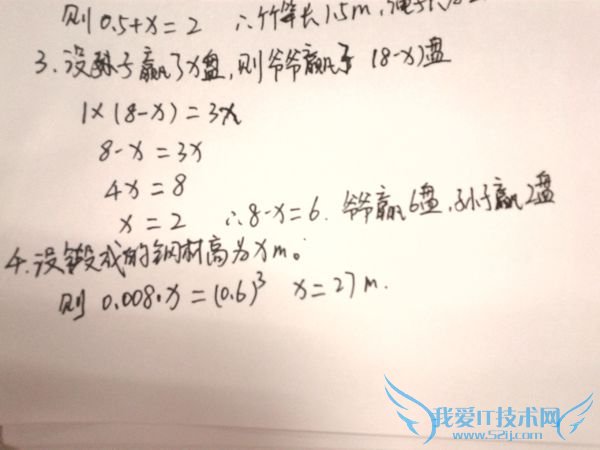 则 0.5+x=2 ∴竹竿长1.5m,绳子长
3.设孙子赢了x盘,则爷爷赢了 (8-x)盘
1×(8-x)=3x
8-x=3x
4x=8
x=2 ∴8-x=6. 爷爷赢6盘,孙子赢2盘
4.设锻成的钢材高为xm。
则 0.008·x=(0.6)³ x=27m.
我爱IT技术网
www.52ij.com